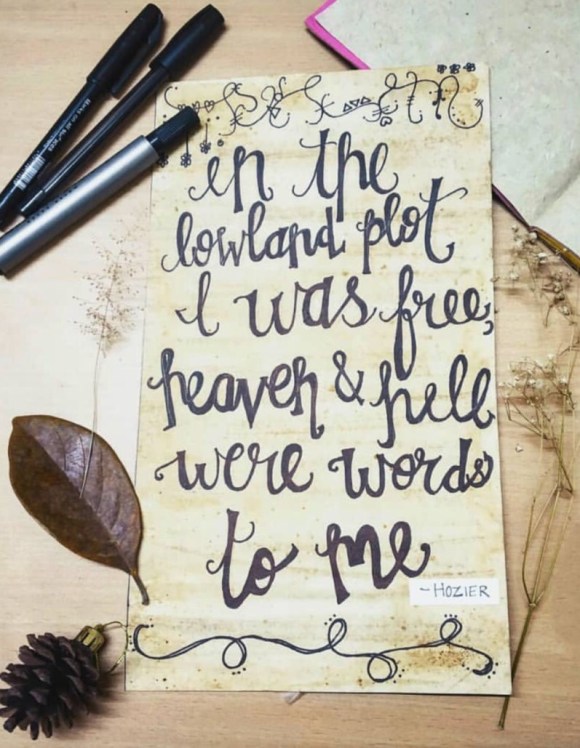 in the
lowland plot
I was free,
heaven & hell
were words
to me
- HOZIER